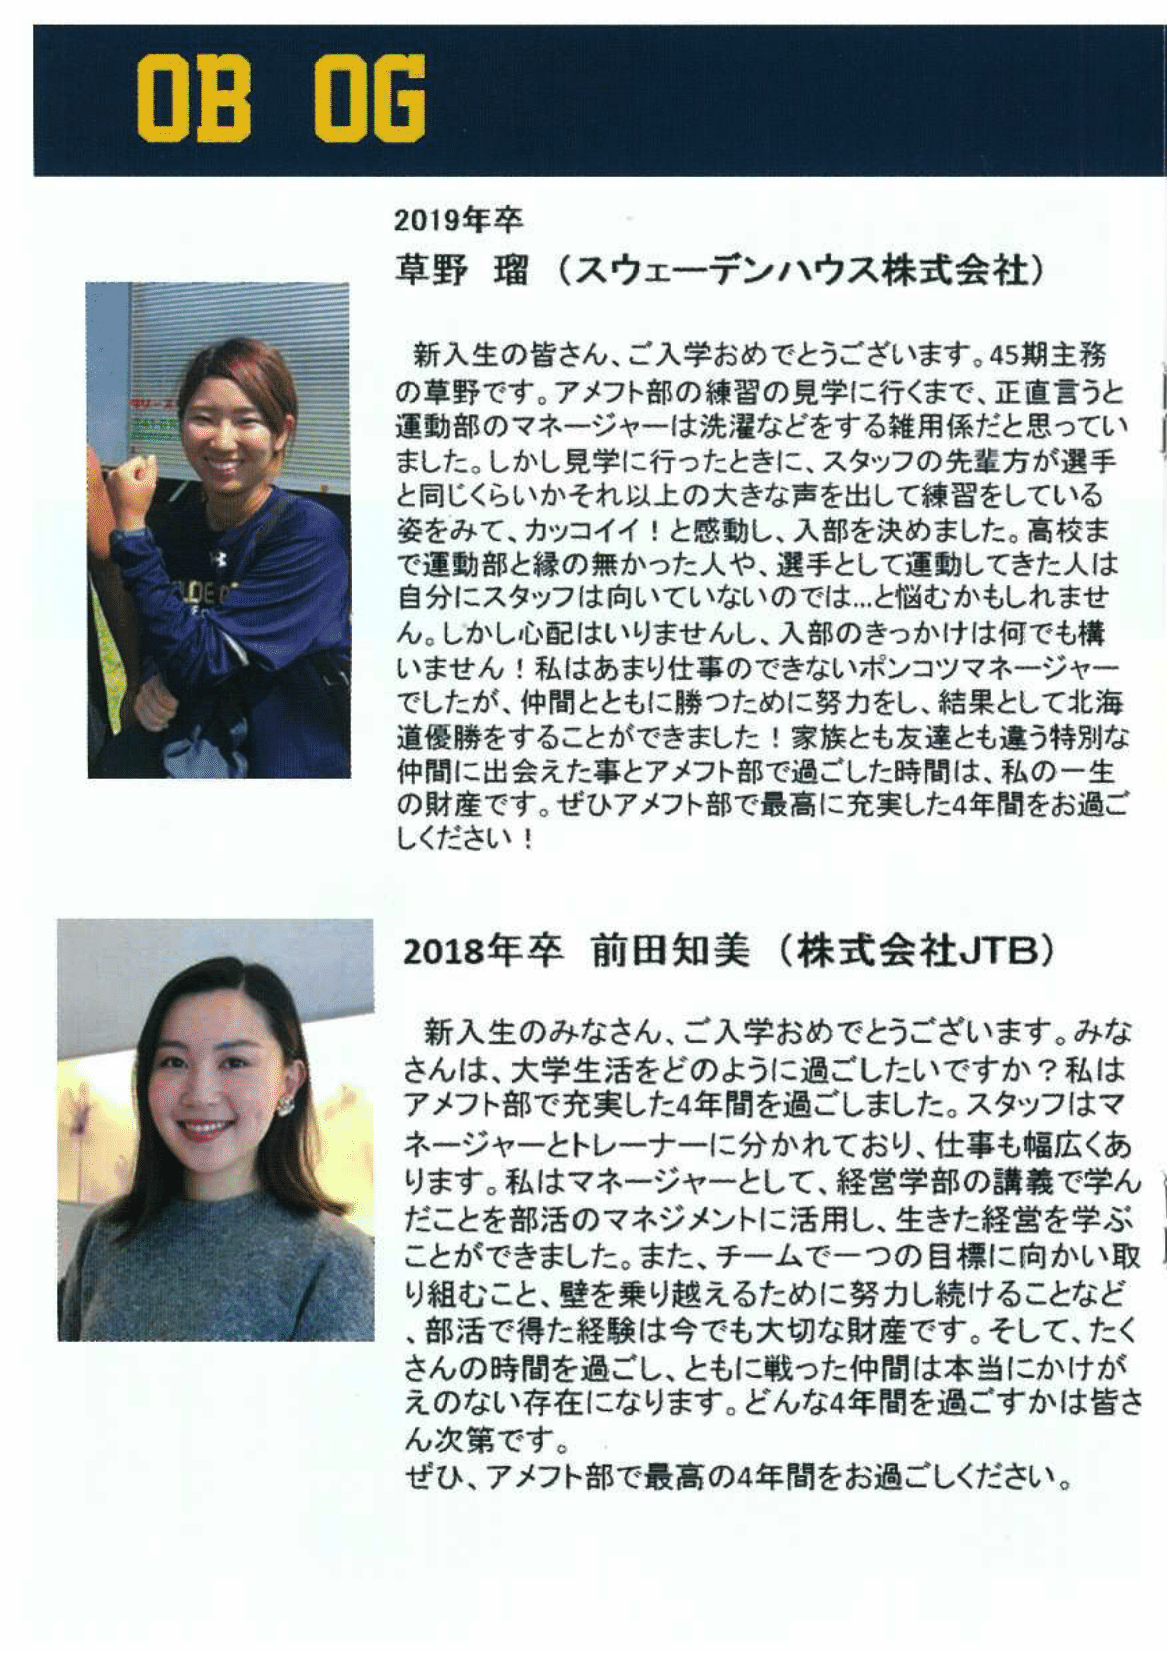 OB OG
2019年卒
草野 瑠 （スウェーデンハウス株式会社）
新入生の皆さん、ご入学おめでとうございます。45期主務
の草野です。アメフト部の練習の見学に行くまで、正直言うと
運動部のマネージャーは洗濯などをする雑用係だと思ってい
ました。しかし見学に行ったときに、スタッフの先輩方が選手
と同じくらいかそれ以上の大きな声を出して練習をしている
姿をみて、カッコイイ！と感動し、入部を決めました。高校ま
で運動部と縁の無かった人や、選手として運動してきた人は
自分にスタッフは向いていないのでは...と悩むかもしれませ
ん。しかし心配はいりませんし、入部のきっかけは何でも構
いません！私はあまり仕事のできないポンコツマネージャー
でしたが、仲間とともに勝つために努力をし、結果として北海
道優勝をすることができました！家族とも友達とも違う特別な
仲間に出会えた事とアメフト部で過ごした時間は、私の一生
の財産です。ぜひアメフト部で最高に充実した4年間をお過ご
しください！
2018年卒 前田知美 （株式会社JTB）
新入生のみなさん、ご入学おめでとうございます。みな
さんは、大学生活をどのように過ごしたいですか？私は
アメフト部で充実した4年間を過ごしました。スタッフはマ
ネージャーとトレーナーに分かれており、仕事も幅広くあ
ります。私はマネージャーとして、経営学部の講義で学ん
だことを部活のマネジメントに活用し、生きた経営を学ぶ
ことができました。また、チームで一つの目標に向かい取
り組むこと、壁を乗り越えるために努力し続けることなど
、部活で得た経験は今でも大切な財産です。そして、たく
さんの時間を過ごし、ともに戦った仲間は本当にかけが
えのない存在になります。どんな4年間を過ごすかは皆さ
ん次第です。
ぜひ、アメフト部で最高の4年間をお過ごしください。